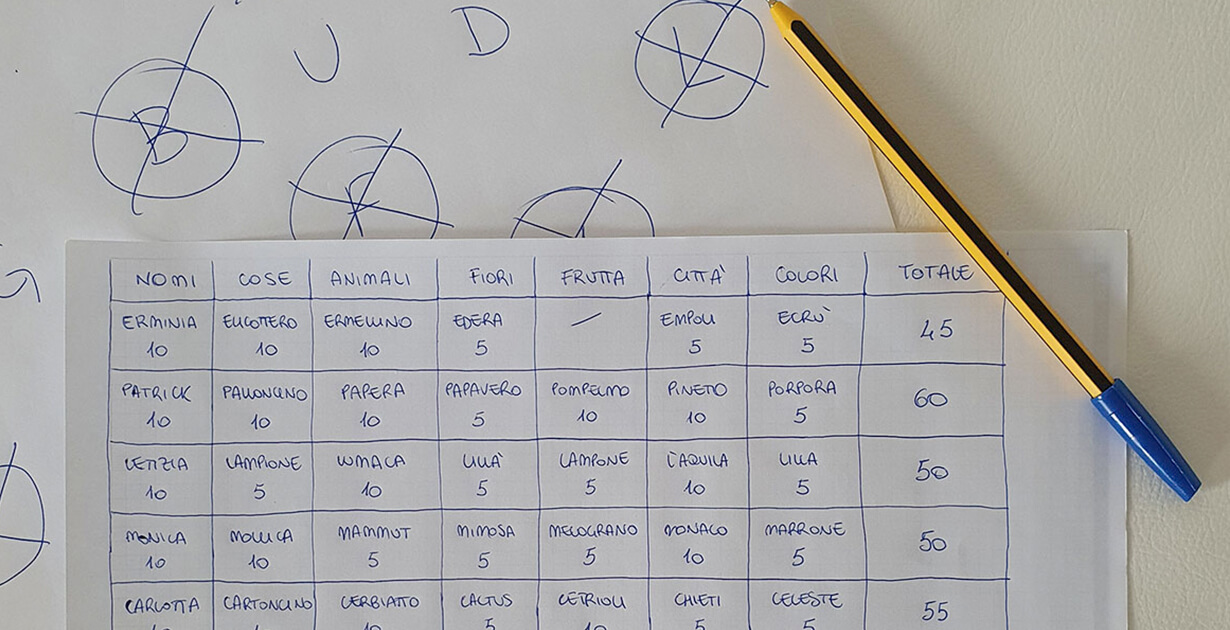 U D
B L
NOMI COSE ANIMALI FIORI FRUTTA CITTÀ COLORI TOTALE
ERMINIA ELICOTTERO ERMELLINO EDERA / EMPOLI ECRÙ 45
10 10 10 5 5 5
PATRICK PALLONCINO PAPERA PAPAVERO POMPELMO PINETO PORPORA 60
10 10 10 5 10 10 5
LETIZIA LAMPIONE LUMACA LILLÀ LAMPONE L'AQUILA LILLA 50
10 5 10 5 5 10 5
MONICA MOLLICA MAMMUT MIMOSA MELOGRANO MONACO MARRONE 50
10 10 5 5 5 10 5
CARLOTTA CARTONCINO CERBIATTO CACTUS CETRIOLI CHIETI CELESTE 55